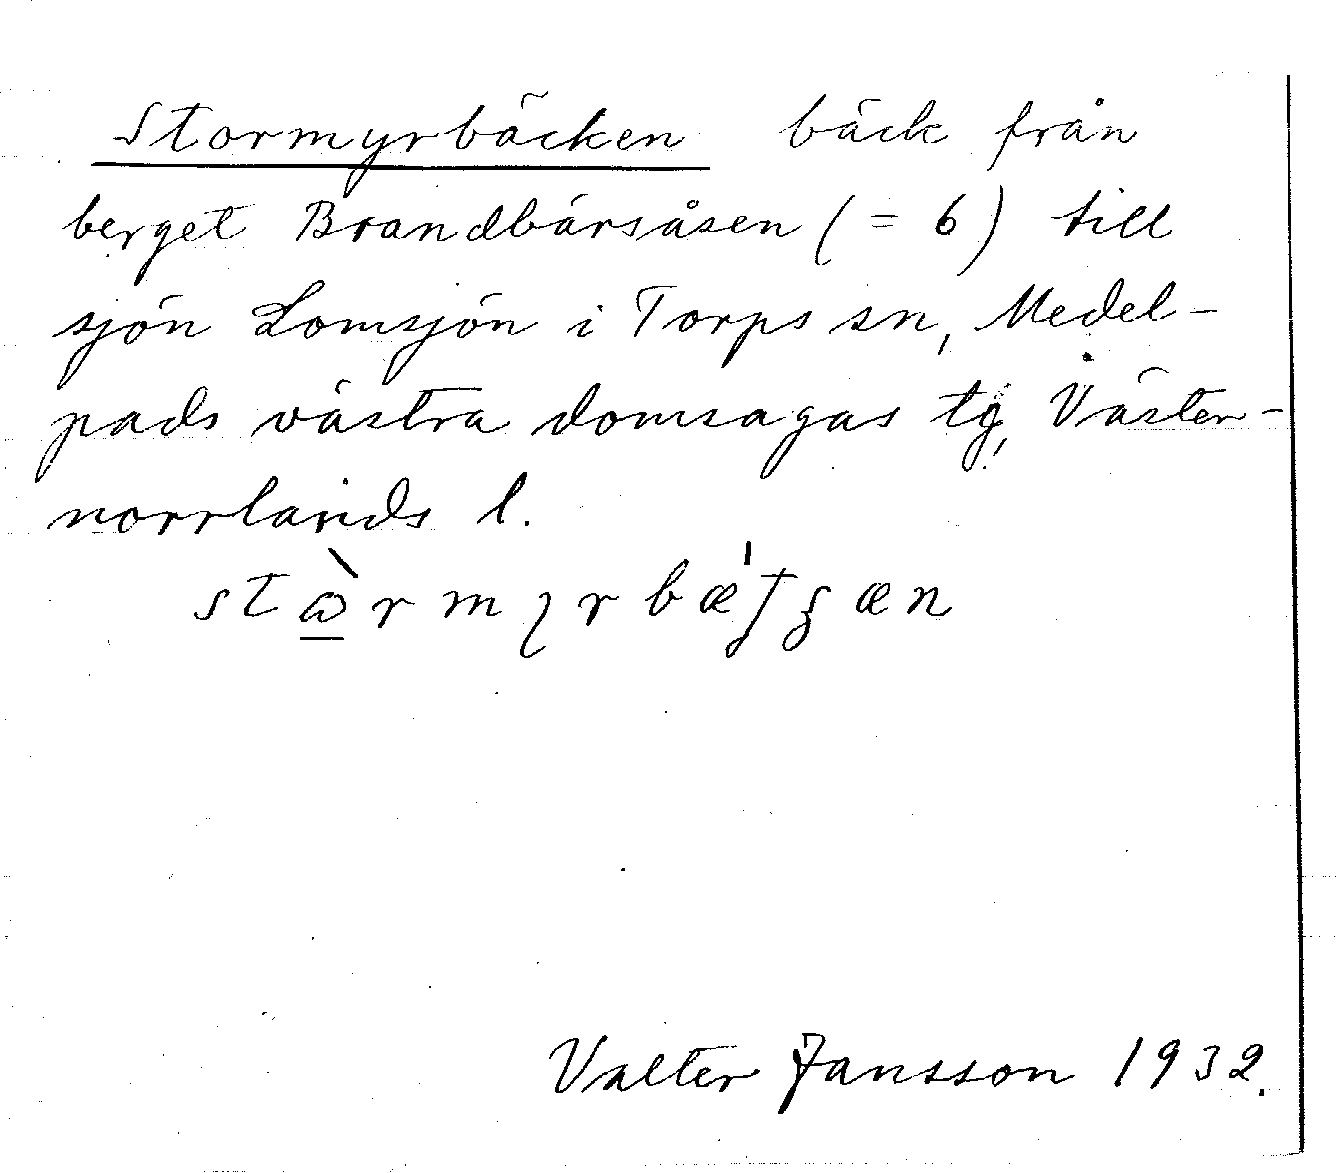 Stormyrbäcken bäck från
berget Brandbärsåsen (= 6) till
sjön Lomsjön i Torps sn, Medel-
pads västra domsagas tg, Väster-
norrlands l.
Valter Jansson 1932.